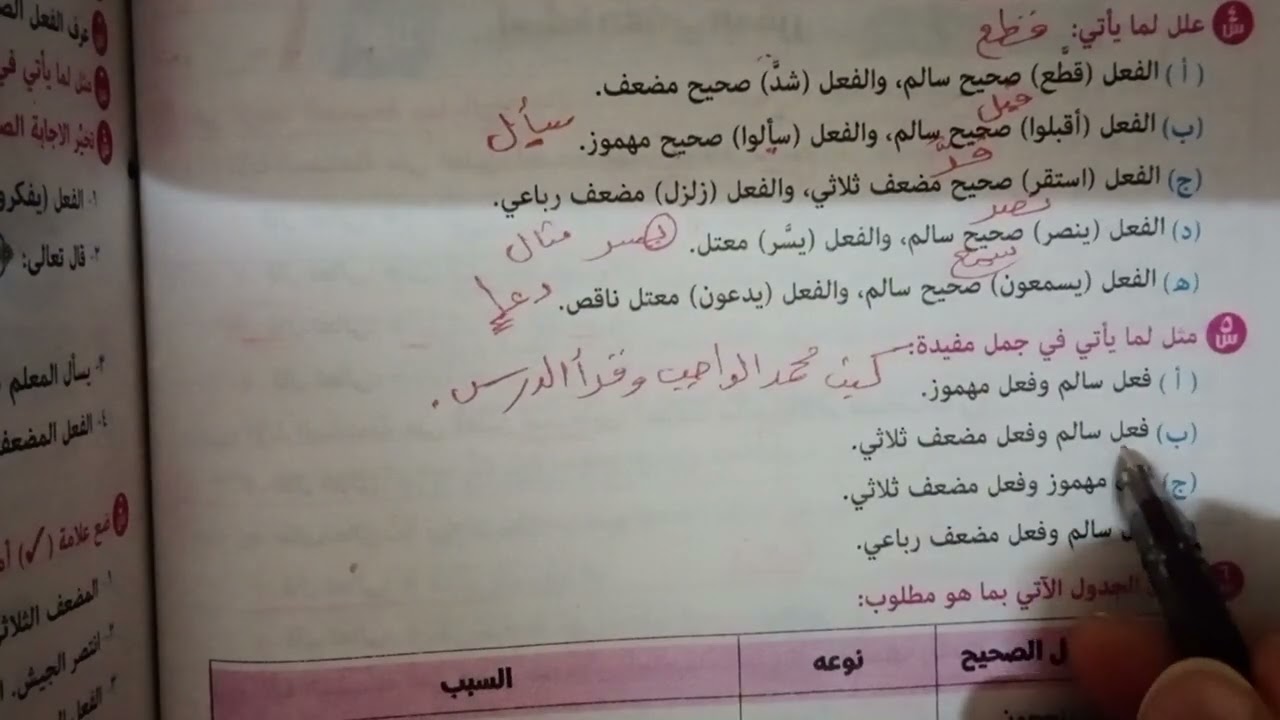 س٤ علل لما يأتي: قطع
(أ) الفعل (قطَّع) صحيح سالم، والفعل (شدَّ) صحيح مضعف.
قبل
(ب) الفعل (أقبلوا) صحيح سالم، والفعل (سألوا) صحيح مهموز. سأل
قرَّ
(ج) الفعل (استقر) صحيح مضعف ثلاثي، والفعل (زلزل) مضعف رباعي.
نصر
(د) الفعل (ينصر) صحيح سالم، والفعل (يسَّر) معتل. يسر مثال
سمع
(ه) الفعل (يسمعون) صحيح سالم، والفعل (يدعون) معتل ناقص. دعا
س٥ مثل لما يأتي في جمل مفيدة:
كتب محمد الواجب وقرأ الدرس.
(أ) فعل سالم وفعل مهموز.
(ب) فعل سالم وفعل مضعف ثلاثي.
(ج) مهموز وفعل مضعف ثلاثي.
سالم وفعل مضعف رباعي.
الجدول الآتي بما هو مطلوب:
الصحيح
نوعه
السبب
عرف الفعل
مثل لما يأتي في
تخيُر الإجابة
١- الفعل (يفكرو
٢- قال تعالى:
٣- يسأل المعلم
٤- الفعل المضعف
ضع علامة (✓)
١- المضعف الثلاثي
٢- انتصر الجيش.
٣- الفعل